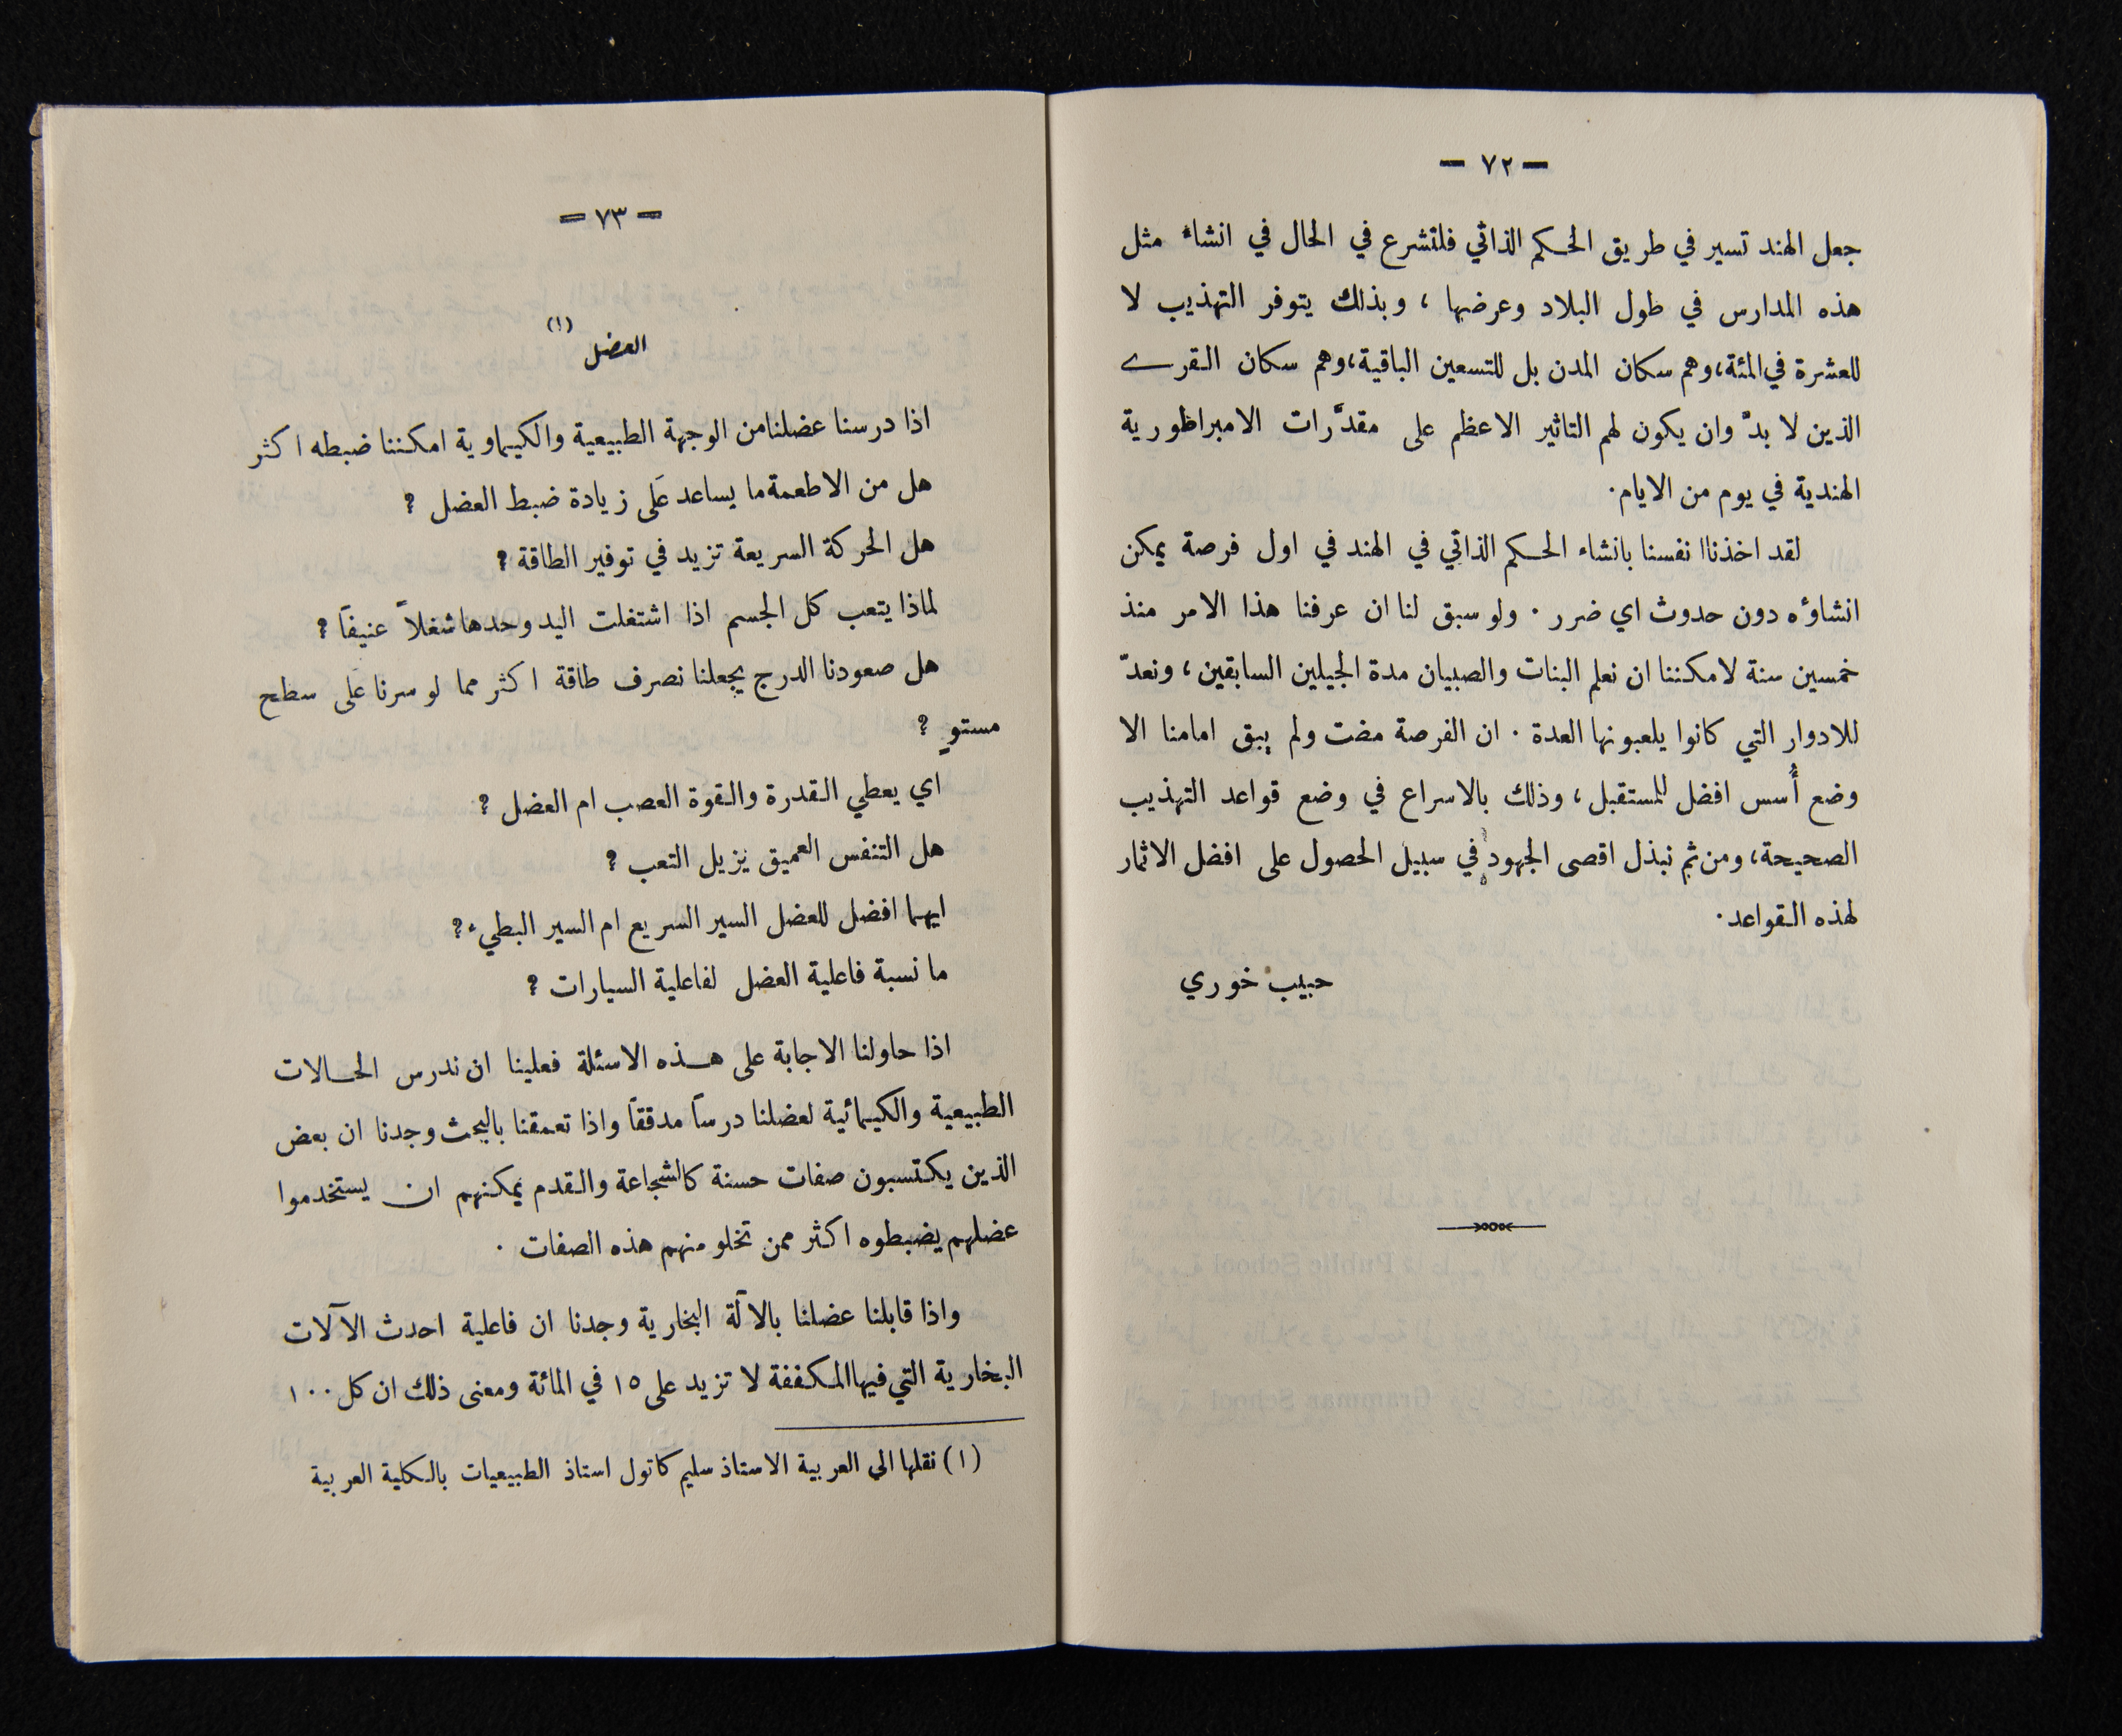 — ٧٢ —
جعل الهند تسير في طريق الحكم الذاتي فلتشرع في الحال في انشاء مثل
هذه المدارس في طول البلاد وعرضها ، وبذلك يتوفر التهذيب لا
للعشرة في المئة، وهم سكان المدن بل للتسعين الباقية، وهم سكان القرى
الذين لا بدَّ وان يكون لهم التاثير الاعظم على مقدَّرات الامبراطورية
الهندية في يوم من الايام.
لقد اخذنا انفسنا بانشاء الحكم الذاتي في الهند في اول فرصة يمكن
انشاؤه دون حدوث اي ضرر . ولو سبق لنا ان عرفنا هذا الامر منذ
خمسين سنة لامكننا ان نعلم البنات والصبيان مدة الجيلين السابقين ، ونعدّ
للادوار التي كانوا يلعبونها العدة . ان الفرصة مضت ولم يبق امامنا الا
وضع أُسس افضل للمستقبل ، وذلك بالاسراع في وضع قواعد التهذيب
الصحيحة، ومن ثم نبذل اقصى الجهود في سبيل الحصول على افضل الاثمار
لهذه القواعد.
حبيب خوري
— ٧٣ —
العضل (١)
اذا درسنا عضلنا من الوجهة الطبيعية والكيماوية امكننا ضبطه اكثر
هل من الاطعمة ما يساعد عَلى زيادة ضبط العضل ؟
هل الحركة السريعة تزيد في توفير الطاقة ؟
لماذا يتعب كل الجسم اذا اشتغلت اليد وحدها شغلاً عنيفاً ؟
هل صعودنا الدرج يجعلنا نصرف طاقة اكثر مما لو سرنا على سطح
مستوٍ ؟
اي يعطي القدرة والقوة العصب ام العضل ؟
هل التنفس العميق يزيل التعب ؟
ايهما افضل للعضل السير السريع ام السير البطيء ؟
ما نسبة فاعلية العضل لفاعلية السيارات ؟
اذا حاولنا الاجابة على هذه الاسئلة فعلينا ان ندرس الحالات
الطبيعية والكيمائية لعضلنا درساً مدققاً واذا تعمقنا بالبحث وجدنا ان بعض
الذين يكتسبون صفات حسنة كالشجاعة والقدم يمكنهم ان يستخدموا
عضلهم يضبطوه اكثر ممن تخلو منهم هذه الصفات .
واذا قابلنا عضلنا بالآلة البخارية وجدنا ان فاعلية احدث الآلات
البخارية التي فيها المكففة لا تزيد على ١٥ في المائة ومعنى ذلك ان كل ١٠٠
(١) نقلها الى العربية الاستاذ سليم كاتول استاذ الطبيعيات بالكلية العربية